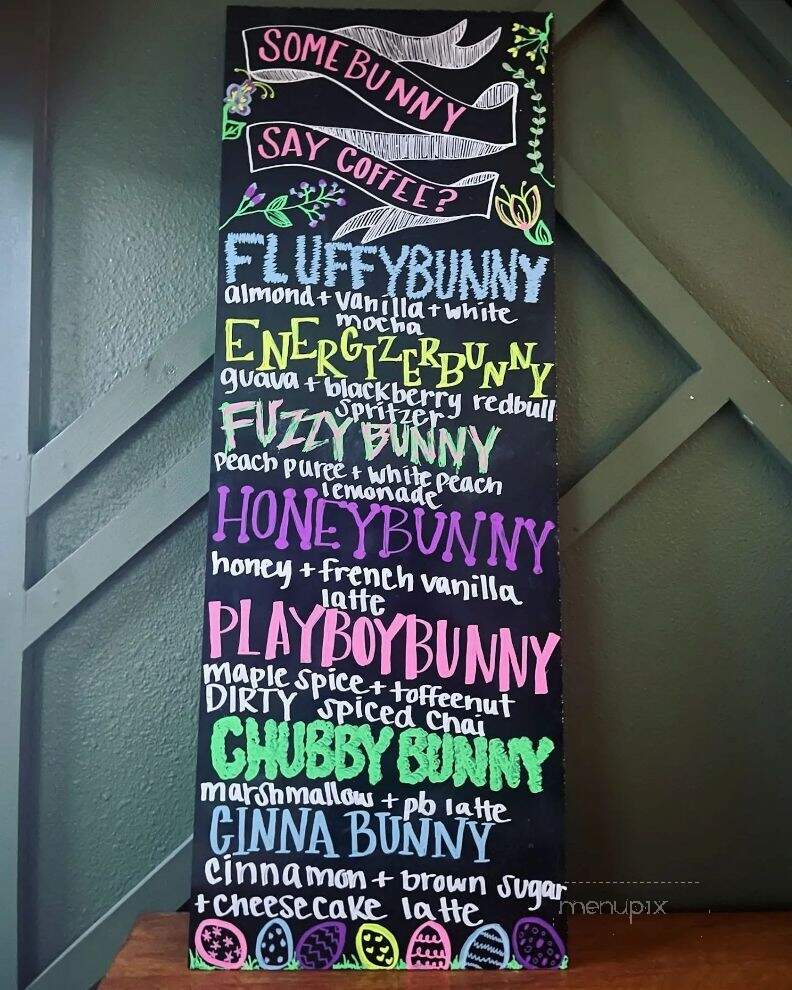 SOMEBUNNY
SAY COFFEE?
FLUFFYBUNNY
almond + vanilla + white
mocha
ENERGIZERBUNNY
guava + blackberry redbull
spritzer
FUZZY BUNNY
peach puree + white peach
lemonade
HONEYBUNNY
honey + french vanilla
latte
PLAYBOYBUNNY
maple spice + toffeenut
DIRTY spiced chai
CHUBBY BUNNY
marshmallow + pb latte
CINNA BUNNY
cinnamon + brown sugar
+ cheesecake latte
menupix